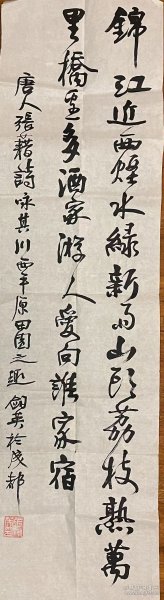 錦江近西煙水綠新雨山頭荔枝熟萬
里橋邊多酒家游人愛向誰家宿
唐人張藉詩咏其川西平原田園之趣 英於成都